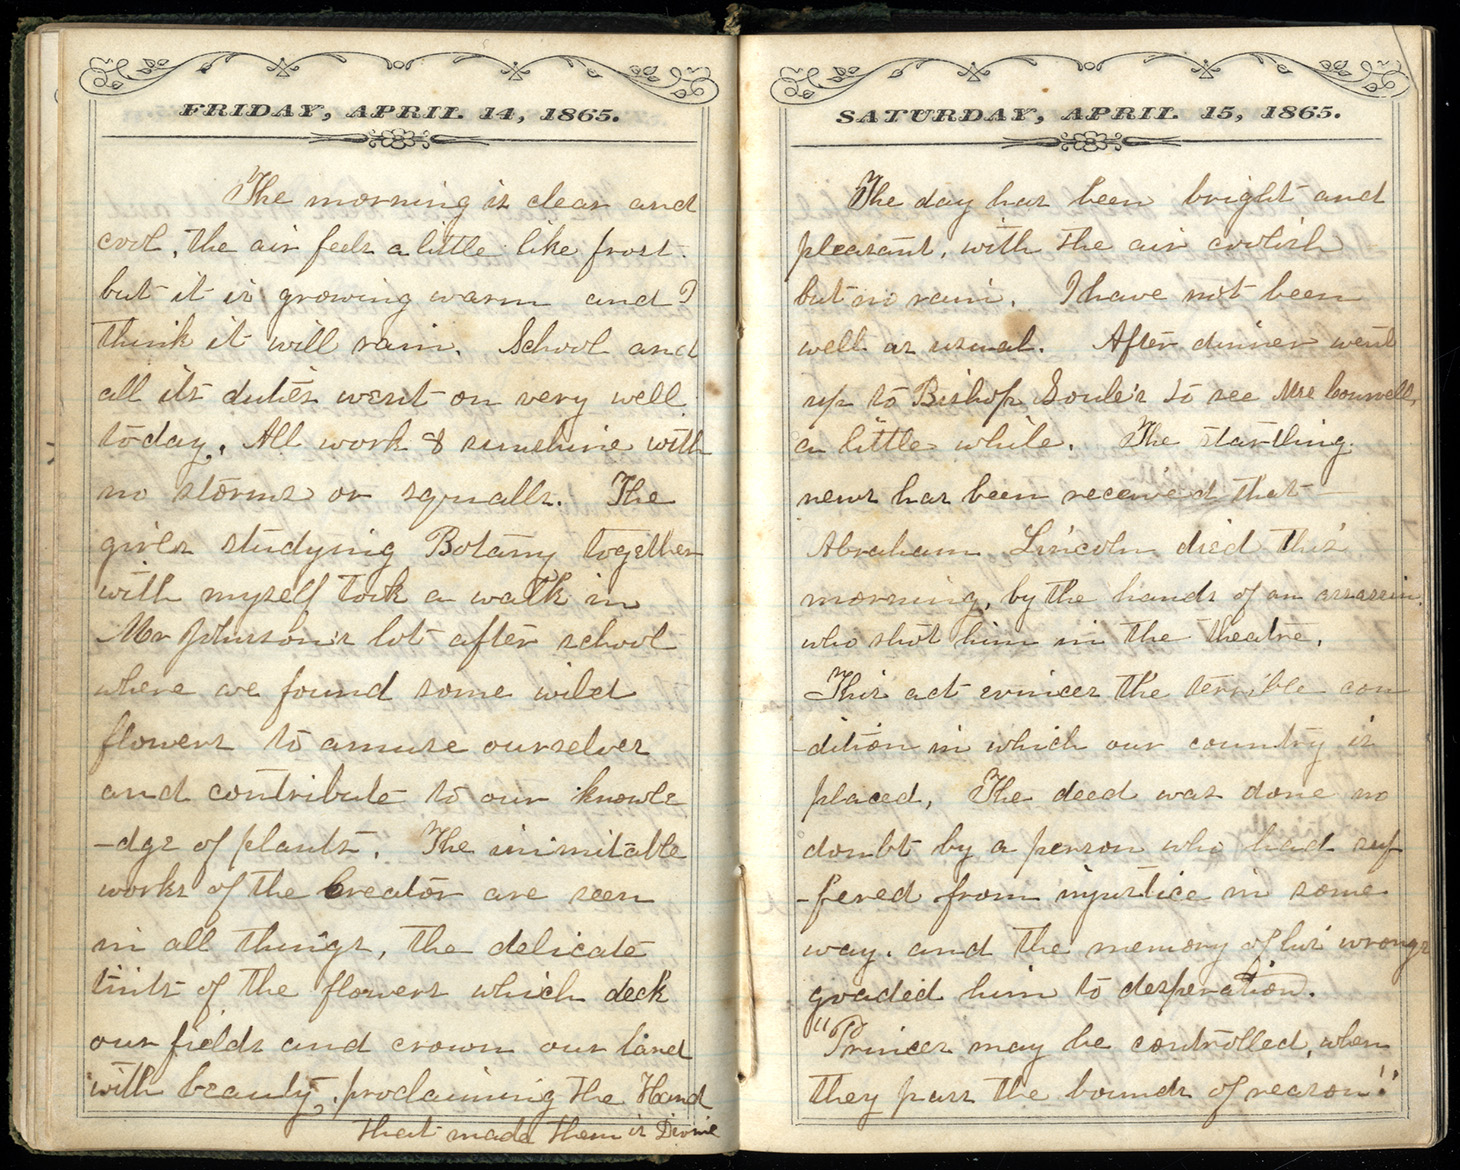 FRIDAY, APRIL 14, 1865.
The morning is clear and
cool, the air feels a little like frost.
but it is growing warm and I
think it will rain. School and
all its duties went on very well
today. All work & sunshine with
no storms or squalls. The
girls studying Botany together
with myself took a walk in
Mr Johnson's lot after school
where we found some wild
flowers to amuse ourselves
and contribute to our knowle
-dge of plants. The inimitable
works of the Creator are seen
in all things, the delicate
tints of the flowers which deck
our fields and crown our land
with beauty, proclaiming the Hand
that made them is Divine
SATURDAY, APRIL 15, 1865.
The day has been bright and
pleasant, with the air coolish
but no rain. I have not been
well as usual. After dinner went
up to Bishop Soule's to see Mrs Conwell,
a little while. The startling
news has been received that
Abraham Lincoln died this
morning, by the hands of an assassin
who shot him in the theatre.
This act evinces the terrible con
-dition in which our country is
placed, The deed was done no
doubt by a person who had suf
-fered from injustice in some
way. and the memory of his wrongs
goaded him to desperation.
"Princes may be controlled, when
they pass the bounds of reason"